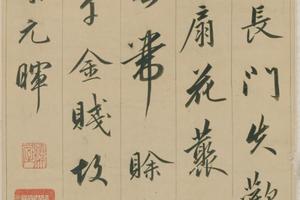 長門失歡
扇花藂
帶賒
千金賤故
元暉